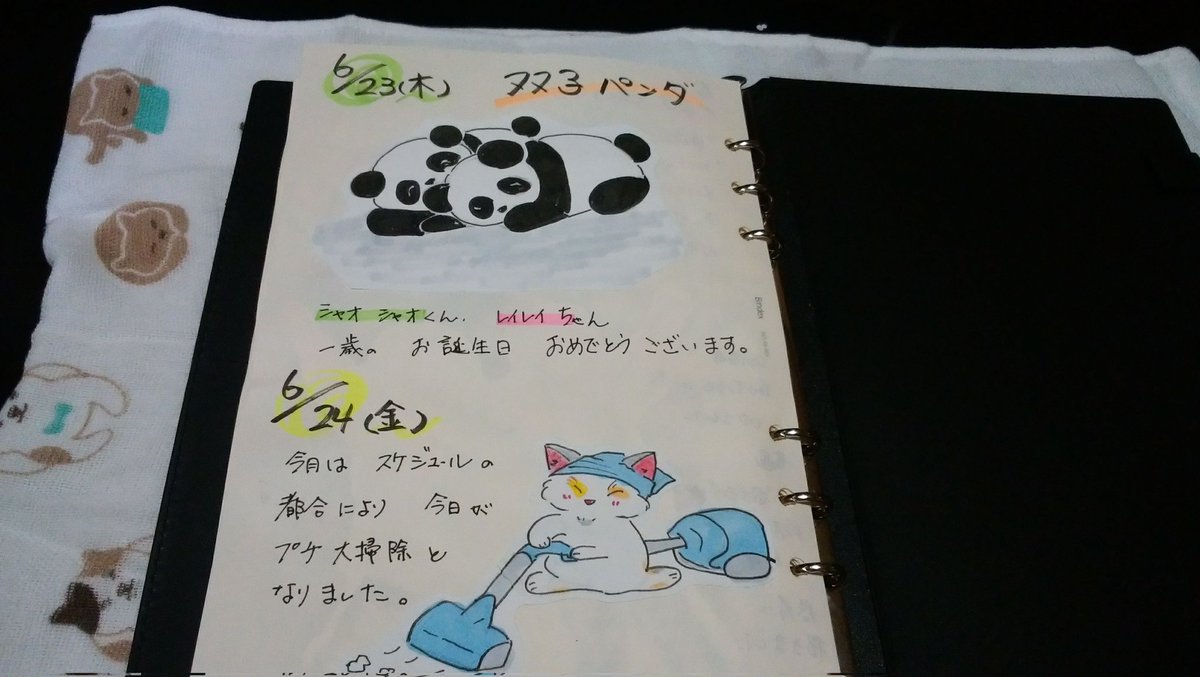 6/23(木) 双子パンダ
シャオシャオくん. レイレイちゃん
一歳の お誕生日 おめでとうございます。
6/24(金)
今月は スケジュールの
都合により 今日が
プケ大掃除と
なりました。